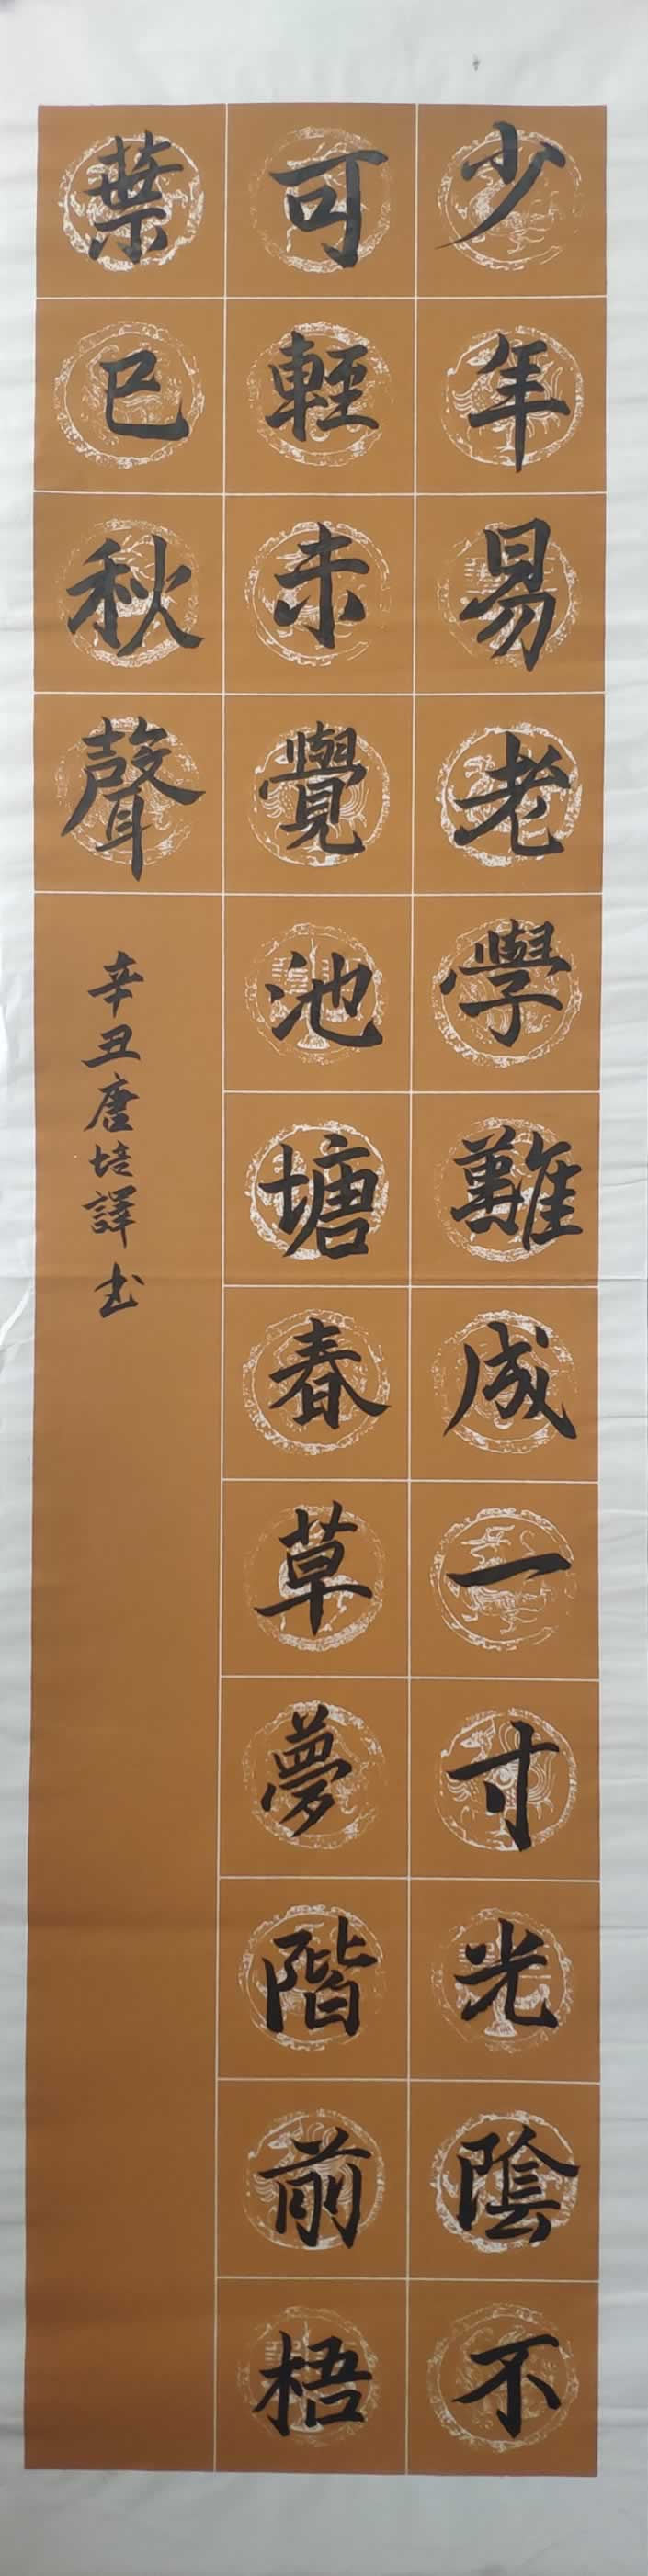 少年易老學難成一寸光陰不
可輕未覺池塘春草夢階前梧
葉已秋聲
辛丑唐培譯书